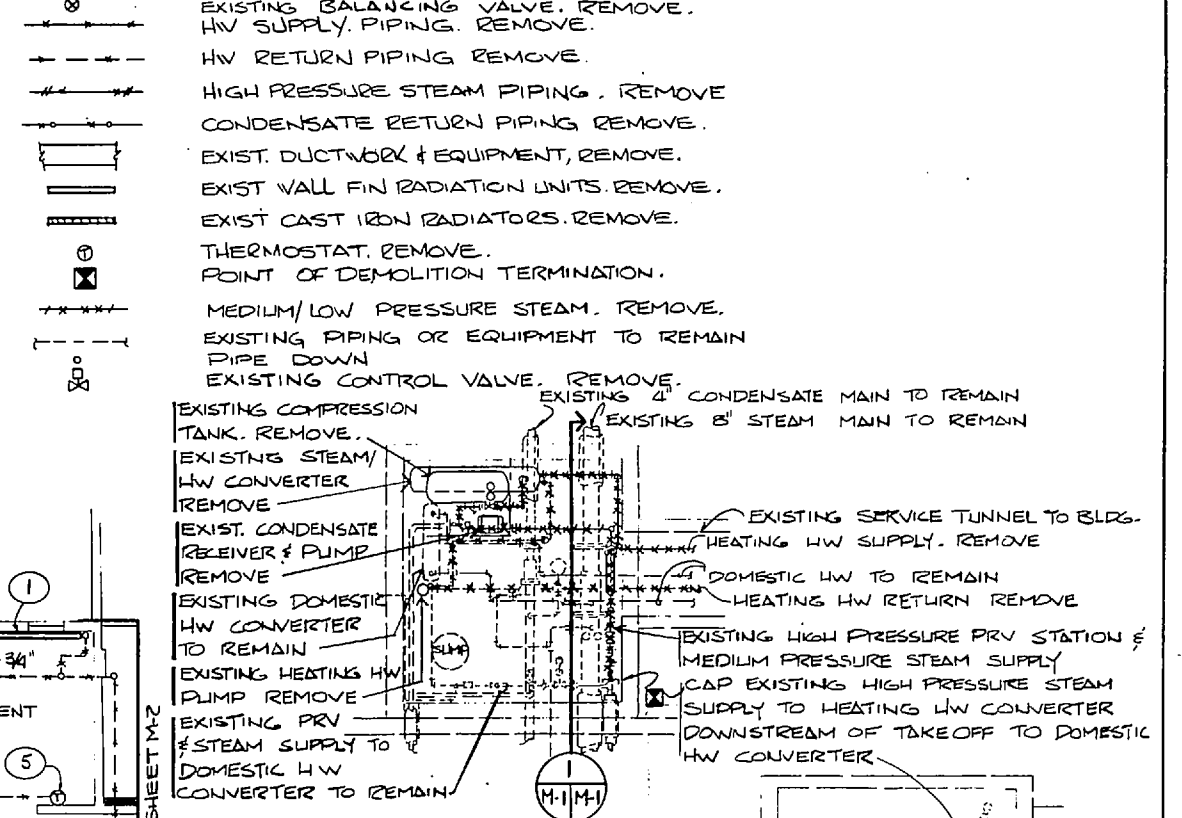 EXISTING BALANCING VALVE. REMOVE.
HW SUPPLY. PIPING. REMOVE.
HW RETURN PIPING REMOVE.
HIGH PRESSURE STEAM PIPING. REMOVE
CONDENSATE RETURN PIPING REMOVE.
EXIST. DUCTWORK & EQUIPMENT, REMOVE.
EXIST WALL FIN RADIATION UNITS. REMOVE.
EXIST CAST IRON RADIATORS. REMOVE.
T
THERMOSTAT. REMOVE.
POINT OF DEMOLITION TERMINATION.
MEDIUM/LOW PRESSURE STEAM. REMOVE.
EXISTING PIPING OR EQUIPMENT TO REMAIN
PIPE DOWN
EXISTING CONTROL VALVE. REMOVE.
EXISTING 4" CONDENSATE MAIN TO REMAIN
EXISTING 8" STEAM MAIN TO REMAIN
EXISTING COMPRESSION
TANK. REMOVE.
EXISTNG STEAM/
HW CONVERTER
REMOVE
EXIST. CONDENSATE
RECEIVER & PUMP
REMOVE
EXISTING DOMESTIC
HW CONVERTER
TO REMAIN
EXISTING HEATING HW
PUMP REMOVE
EXISTING PRV
& STEAM SUPPLY TO
DOMESTIC HW
CONVERTER TO REMAIN
SUMP
EXISTING SERVICE TUNNEL TO BLDG.
HEATING HW SUPPLY. REMOVE
DOMESTIC HW TO REMAIN
HEATING HW RETURN REMOVE
EXISTING HIGH PRESSURE PRV STATION &
MEDIUM PRESSURE STEAM SUPPLY
CAP EXISTING HIGH PRESSURE STEAM
SUPPLY TO HEATING HW CONVERTER
DOWNSTREAM OF TAKEOFF TO DOMESTIC
HW CONVERTER
1
M-1 M-1
1
3/4"
ENT
5
T
SHEET M-2